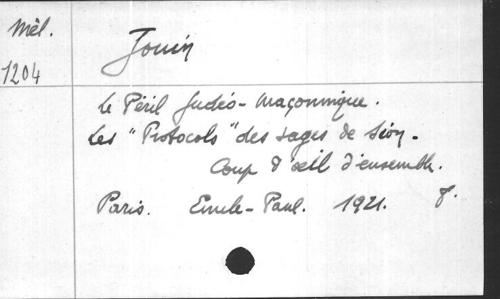 Mél.
1204
Jouin
Le Péril Judéo-Maçonnique.
Les "Protocols" des sages de Sion.
Coup d'œil d'ensemble.
Paris. Emile-Paul. 1921. 8.